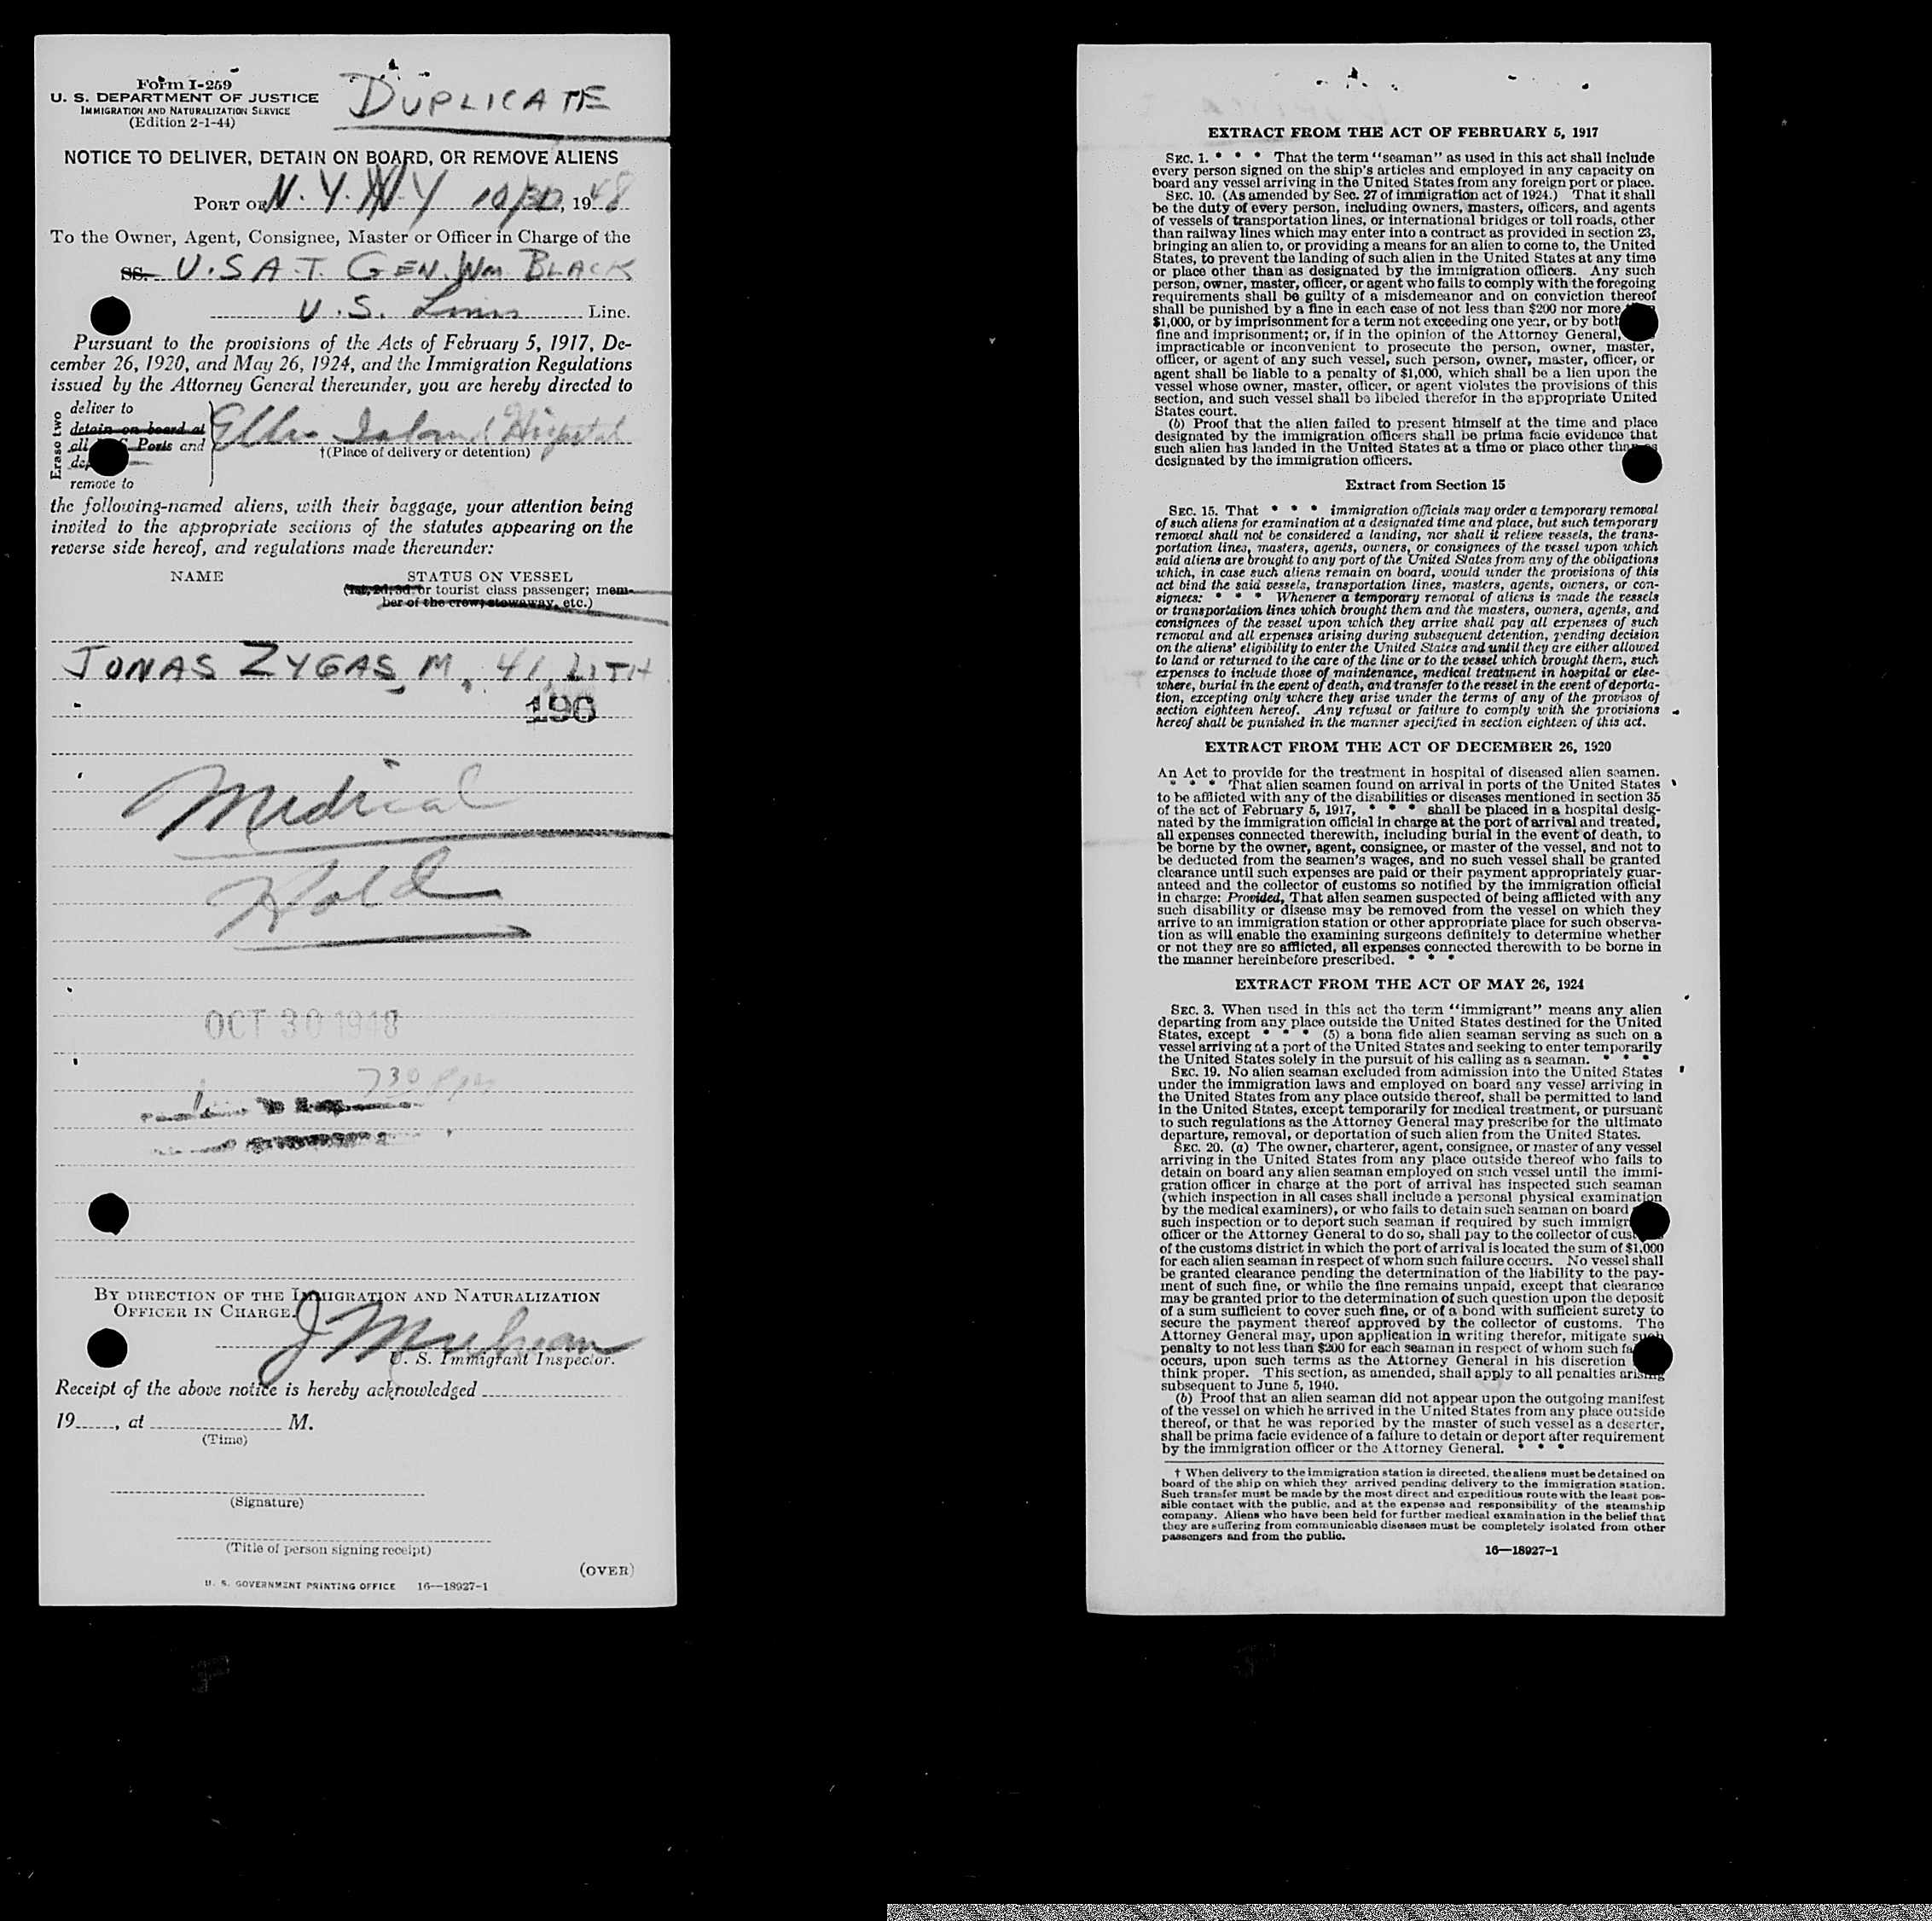 Form I-259
U. S. DEPARTMENT OF JUSTICE
IMMIGRATION AND NATURALIZATION SERVICE
(Edition 2-1-44)
DUPLICATE
NOTICE TO DELIVER, DETAIN ON BOARD, OR REMOVE ALIENS
PORT OF N. Y. N Y 10/30, 1948
To the Owner, Agent, Consignee, Master or Officer in Charge of the
SS. U.S.A.T. GEN. WM BLACK
U.S. Lines Line.
Pursuant to the provisions of the Acts of February 5, 1917, De-
cember 26, 1920, and May 26, 1924, and the Immigration Regulations
issued by the Attorney General thereunder, you are hereby directed to
Erase two
deliver to
detain on board at
all Ports and
remove to
Ellis Island Hospital
†(Place of delivery or detention)
the following-named aliens, with their baggage, your attention being
invited to the appropriate sections of the statutes appearing on the
reverse side hereof, and regulations made thereunder:
NAME STATUS ON VESSEL
(1st, 2d, 3d, or tourist class passenger; mem-
ber of the crew; stowaway, etc.)
JONAS ZYGAS, M, 41, LITH
190
Medical
Hold
OCT 30 1948
730 pm
BY DIRECTION OF THE IMMIGRATION AND NATURALIZATION
OFFICER IN CHARGE.
U. S. Immigrant Inspector.
Receipt of the above notice is hereby acknowledged
19, at M.
(Time)
(Signature)
(Title of person signing receipt)
(OVER)
U. S. GOVERNMENT PRINTING OFFICE 16—18927-1
EXTRACT FROM THE ACT OF FEBRUARY 5, 1917
SEC. 1. * * * That the term "seaman" as used in this act shall include
every person signed on the ship's articles and employed in any capacity on
board any vessel arriving in the United States from any foreign port or place.
SEC. 10. (As amended by Sec. 27 of immigration act of 1924.) That it shall
be the duty of every person, including owners, masters, officers, and agents
of vessels of transportation lines, or international bridges or toll roads, other
than railway lines which may enter into a contract as provided in section 23,
bringing an alien to, or providing a means for an alien to come to, the United
States, to prevent the landing of such alien in the United States at any time
or place other than as designated by the immigration officers. Any such
person, owner, master, officer, or agent who fails to comply with the foregoing
requirements shall be guilty of a misdemeanor and on conviction thereof
shall be punished by a fine in each case of not less than $200 nor more
$1,000, or by imprisonment for a term not exceeding one year, or by both
fine and imprisonment; or, if in the opinion of the Attorney General,
impracticable or inconvenient to prosecute the person, owner, master,
officer, or agent of any such vessel, such person, owner, master, officer, or
agent shall be liable to a penalty of $1,000, which shall be a lien upon the
vessel whose owner, master, officer, or agent violates the provisions of this
section, and such vessel shall be libeled therefor in the appropriate United
States court.
(b) Proof that the alien failed to present himself at the time and place
designated by the immigration officers shall be prima facie evidence that
such alien has landed in the United States at a time or place other than as
designated by the immigration officers.
Extract from Section 15
SEC. 15. That * * * immigration officials may order a temporary removal
of such aliens for examination at a designated time and place, but such temporary
removal shall not be considered a landing, nor shall it relieve vessels, the trans-
portation lines, masters, agents, owners, or consignees of the vessel upon which
said aliens are brought to any port of the United States from any of the obligations
which, in case such aliens remain on board, would under the provisions of this
act bind the said vessels, transportation lines, masters, agents, owners, or con-
signees: * * * Whenever a temporary removal of aliens is made the vessels
or transportation lines which brought them and the masters, owners, agents, and
consignees of the vessel upon which they arrive shall pay all expenses of such
removal and all expenses arising during subsequent detention, pending decision
on the aliens' eligibility to enter the United States and until they are either allowed
to land or returned to the care of the line or to the vessel which brought them, such
expenses to include those of maintenance, medical treatment in hospital or else-
where, burial in the event of death, and transfer to the vessel in the event of deporta-
tion, excepting only where they arise under the terms of any of the provisos of
section eighteen hereof. Any refusal or failure to comply with the provisions
hereof shall be punished in the manner specified in section eighteen of this act.
EXTRACT FROM THE ACT OF DECEMBER 26, 1920
An Act to provide for the treatment in hospital of diseased alien seamen.
* * * That alien seamen found on arrival in ports of the United States
to be afflicted with any of the disabilities or diseases mentioned in section 35
of the act of February 5, 1917, * * * shall be placed in a hospital desig-
nated by the immigration official in charge at the port of arrival and treated,
all expenses connected therewith, including burial in the event of death, to
be borne by the owner, agent, consignee, or master of the vessel, and not to
be deducted from the seamen's wages, and no such vessel shall be granted
clearance until such expenses are paid or their payment appropriately guar-
anteed and the collector of customs so notified by the immigration official
in charge: Provided, That alien seamen suspected of being afflicted with any
such disability or disease may be removed from the vessel on which they
arrive to an immigration station or other appropriate place for such observa-
tion as will enable the examining surgeons definitely to determine whether
or not they are so afflicted, all expenses connected therewith to be borne in
the manner hereinbefore prescribed. * * *
EXTRACT FROM THE ACT OF MAY 26, 1924
SEC. 3. When used in this act the term "immigrant" means any alien
departing from any place outside the United States destined for the United
States, except * * * (5) a bona fide alien seaman serving as such on a
vessel arriving at a port of the United States and seeking to enter temporarily
the United States solely in the pursuit of his calling as a seaman. * * *
SEC. 19. No alien seaman excluded from admission into the United States
under the immigration laws and employed on board any vessel arriving in
the United States from any place outside thereof, shall be permitted to land
in the United States, except temporarily for medical treatment, or pursuant
to such regulations as the Attorney General may prescribe for the ultimate
departure, removal, or deportation of such alien from the United States.
SEC. 20. (a) The owner, charterer, agent, consignee, or master of any vessel
arriving in the United States from any place outside thereof who fails to
detain on board any alien seaman employed on such vessel until the immi-
gration officer in charge at the port of arrival has inspected such seaman
(which inspection in all cases shall include a personal physical examination
by the medical examiners), or who fails to detain such seaman on board
such inspection or to deport such seaman if required by such immigr
officer or the Attorney General to do so, shall pay to the collector of customs
of the customs district in which the port of arrival is located the sum of $1,000
for each alien seaman in respect of whom such failure occurs. No vessel shall
be granted clearance pending the determination of the liability to the pay-
ment of such fine, or while the fine remains unpaid, except that clearance
may be granted prior to the determination of such question upon the deposit
of a sum sufficient to cover such fine, or of a bond with sufficient surety to
secure the payment thereof approved by the collector of customs. The
Attorney General may, upon application in writing therefor, mitigate such
penalty to not less than $200 for each seaman in respect of whom such fa
occurs, upon such terms as the Attorney General in his discretion
think proper. This section, as amended, shall apply to all penalties arising
subsequent to June 5, 1940.
(b) Proof that an alien seaman did not appear upon the outgoing manifest
of the vessel on which he arrived in the United States from any place outside
thereof, or that he was reported by the master of such vessel as a deserter,
shall be prima facie evidence of a failure to detain or deport after requirement
by the immigration officer or the Attorney General. * * *
† When delivery to the immigration station is directed, the aliens must be detained on
board of the ship on which they arrived pending delivery to the immigration station.
Such transfer must be made by the most direct and expeditious route with the least pos-
sible contact with the public, and at the expense and responsibility of the steamship
company. Aliens who have been held for further medical examination in the belief that
they are suffering from communicable diseases must be completely isolated from other
passengers and from the public.
16—18927-1